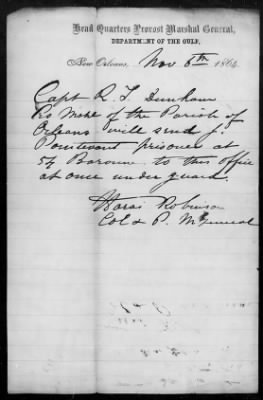 Head Quarters Provost Marshal General,
DEPARTMENT OF THE GULF,
New Orleans, Nov 6th 1864
Capt R. T. Dunham
Pro Mshl of the Parish of
Orleans will send J.
Poutevant prisoner at
54 Baronne to this office
at once under guard.
Harai Robinson
Col & P. M General